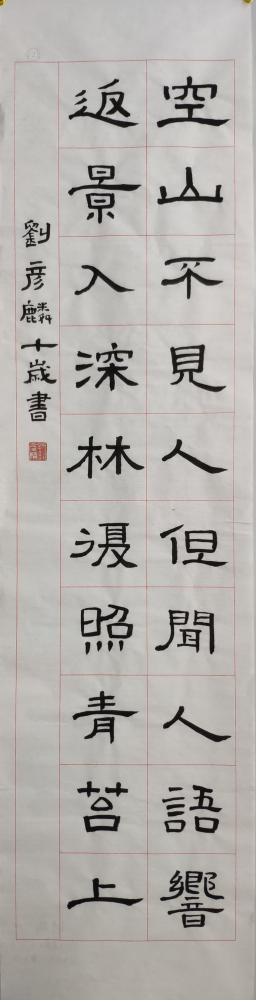 空山不見人但聞人語響
返景入深林復照青苔上
劉彦麟十歲書